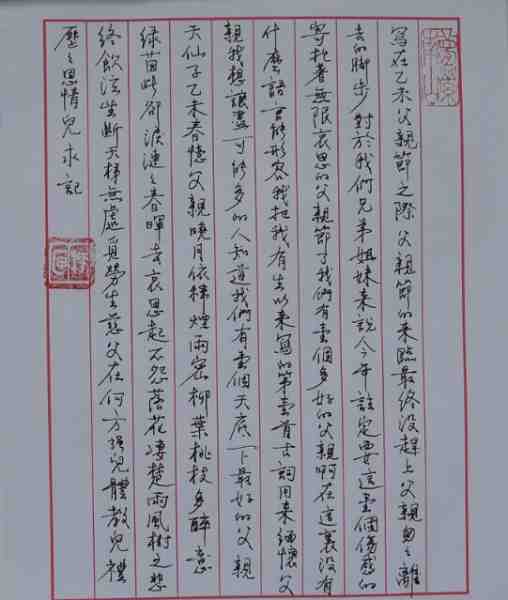 寫在乙未父親節之際父親節的来臨最终没趕上父親匆匆離
去的脚步對於我們兄弟姐妹来說今年註定要過壹個傷感的
寄托着無限哀思的父親節了我們有壹個多好的父親啊在這裏没有
什麽語言能形容我把我有生以来寫的第壹首古詞用来緬懷父
親我想讓盡可能多的人知道我們有壹個天底下最好的父親
天仙子乙未春憶父親曉月依稀煙雨密柳葉桃枝多醉意
绿苗此卻淚漣々春暉去哀思起不怨落花凄楚雨風樹之悲
终飲泣坐斷天梯無處覓勞生慈父在何方强兒體教兒禮
歷々恩情兒永記